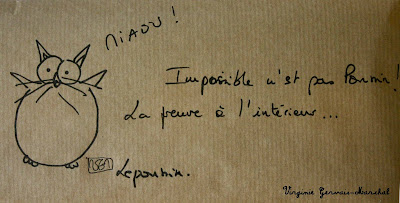 MIAOU !
Impossible n'est pas Poumin !
La preuve à l'intérieur...
Lepoumin.
Virginie Gervais-Marchal